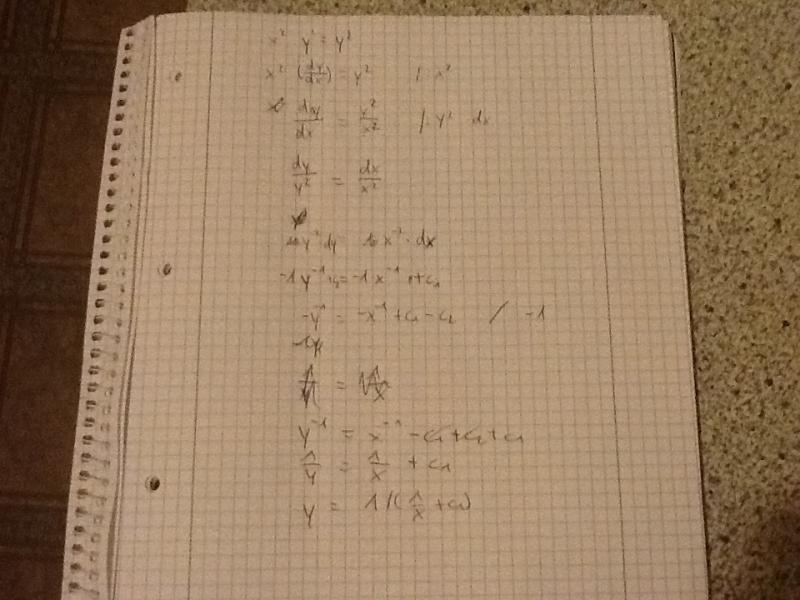 x² y' = y²
x² (dy/dx) = y² | : x²
dy/dx = y²/x² | : y² · dx
dy/y² = dx/x²
y⁻² dy = x⁻² · dx
-1 y⁻¹ + c₂ = -1 x⁻¹ + c₁
-y⁻¹ = -x⁻¹ + c₁ - c₂ / · -1
=
y⁻¹ = x⁻¹ - c₁ + c₂
1/y = 1/x + c₁
y = 1/(1/x + c₁)